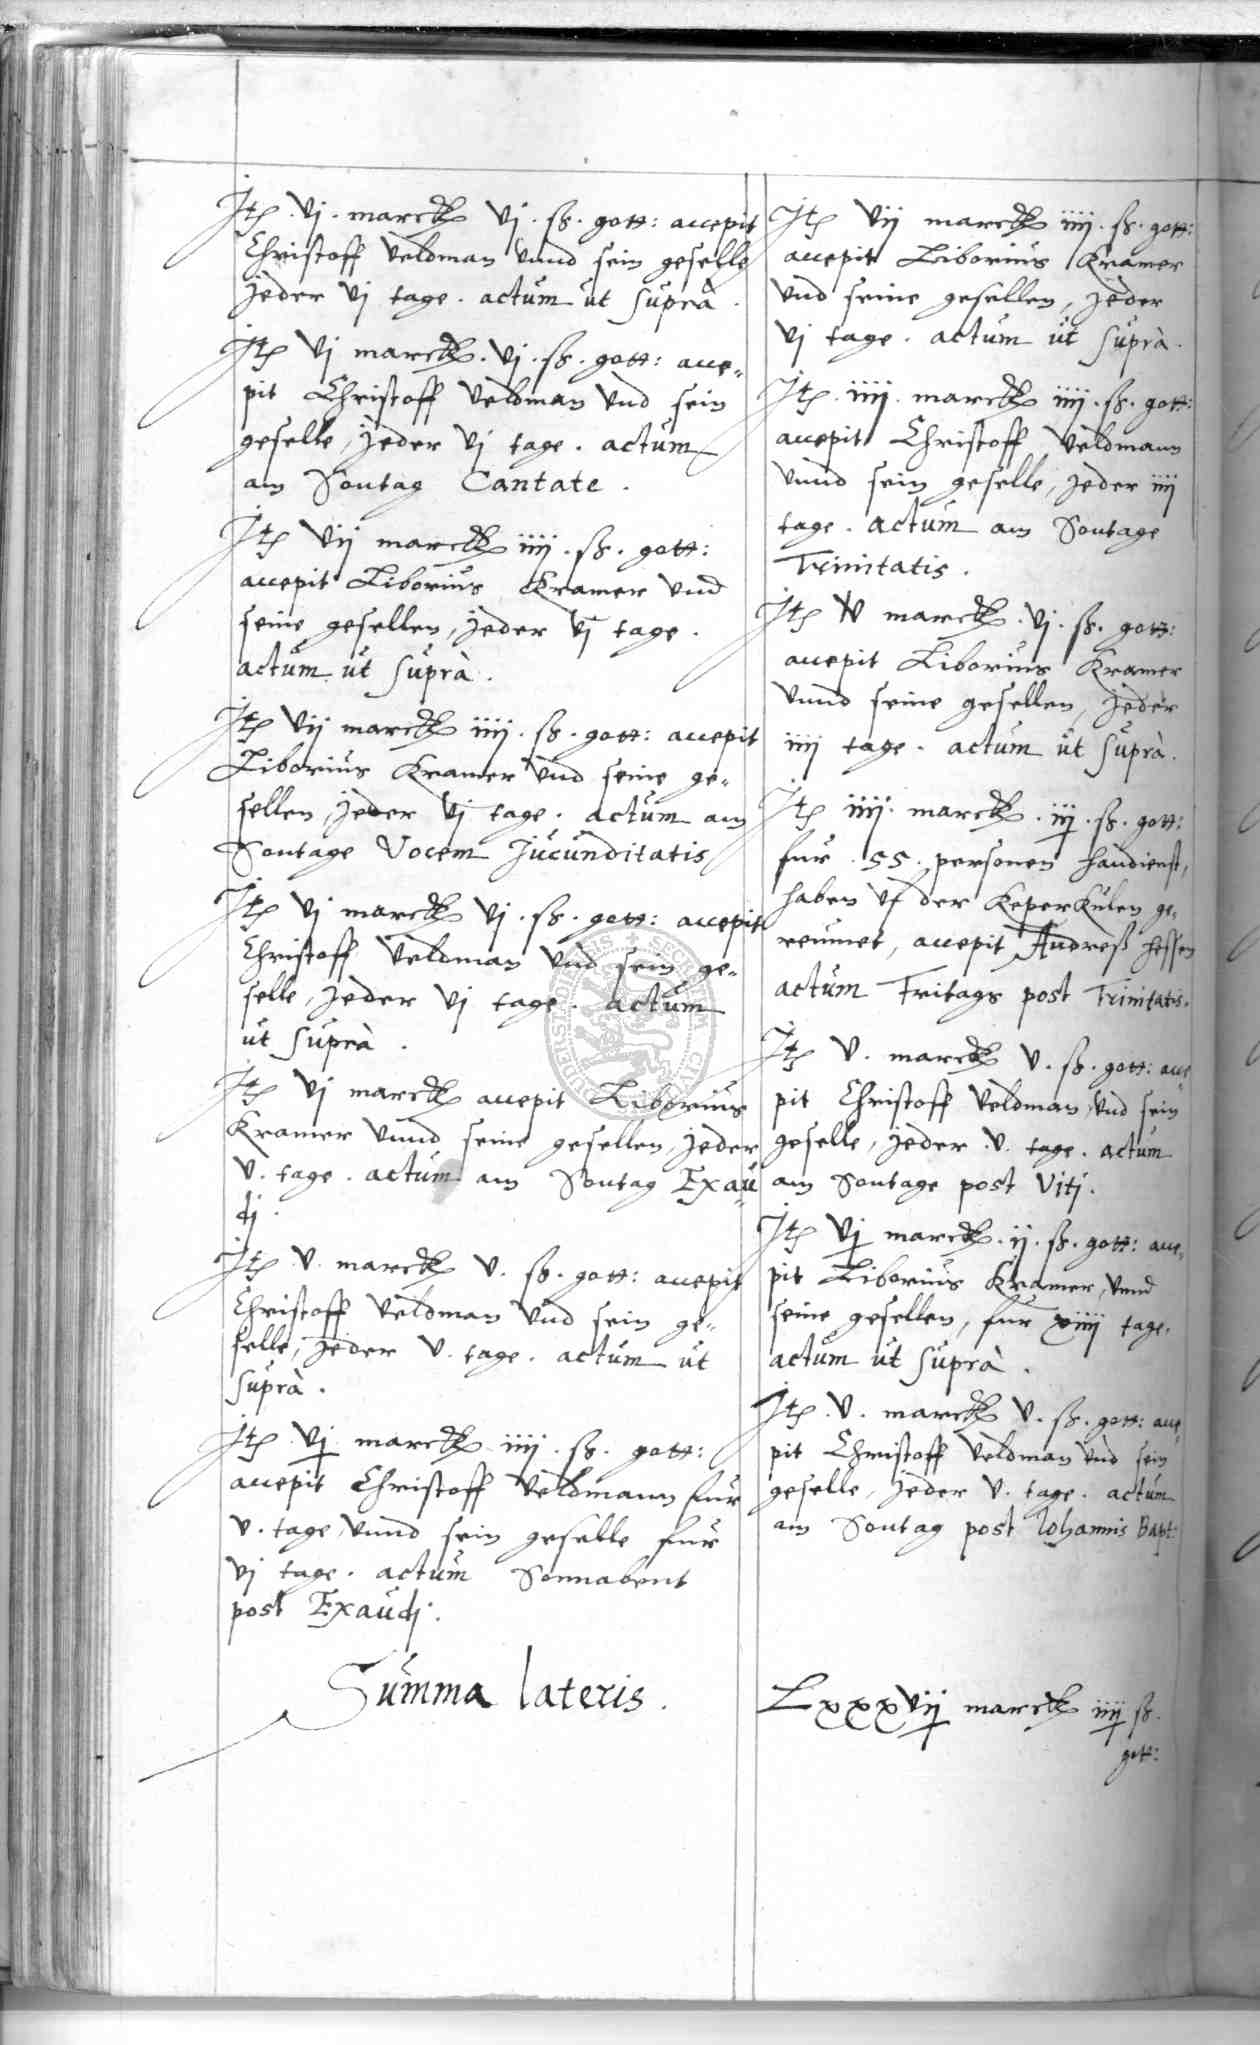 Jtem .vj. marck vj. ß. gott: accepit
Christoff Veldman vnnd sein geselle
Jeder vj tage. actum ut suprà.
Jtem vj marck. vj. ß. gott: acce„
pit Christoff Veldman vnd sein
geselle, Jeder vj tage. actum
am Sontag Cantate.
Jtem vij marck iiij. ß. gott:
accepit Liborius Kramer vnd
seine gesellen, Jeder vj tage.
actum ut suprà.
Jtem vij marck iiij. ß. gott: accepit
Liborius Kramer vnd seine ge„
sellen, Jeder vj tage. actum am
Sontage Vocem Jucunditatis
Jtem vj marck vj. ß. gott: accepit
Christoff Veldman vnd sein ge„
selle, Jeder vj tage. actum
ut suprà.
Jtem vj marck accepit Liborius
Kramer vnnd seine gesellen, Jeder
v. tage. actum am Sontag Exau„
dj.
Jtem v. marck v. ß. gott: accepit
Christoff Veldman vnd sein ge„
selle, Jeder v. tage. actum ut
suprà.
Jtem vj marck iiij. ß. gott:
accepit Christoff Veldmann fur
v. tage, vnnd sein geselle fur
vj tage. actum Sonnabent
post Exaudj.
Summa lateris.
Jtem vij marck iiij. ß. gott:
accepit Liborius Kramer
vnd seine gesellen, Jeder
vj tage. actum ut suprà.
Jtem. iiij. marck iiij. ß. gott:
accepit Christoff Veldmann
vnnd sein geselle, Jeder iiij
tage. actum am Sontage
Trinitatis.
Jtem v marck. vj. ß. gott:
accepit Liborius Kramer
vnnd seine gesellen, Jeder
iiij tage. actum ut suprà.
Jtem iiij. marck. iij. ß. gott:
fur. 55. personen handienst,
haben vf der Keperkulen ge„
reumet, accepit Andreß Hessen
actum Fritags post Trinitatis.
Jtem v. marck v. ß. gott: acce„
pit Christoff Veldman vnd sein
geselle, Jeder v. tage. actum
am Sontage post Vitj.
Jtem vj marck. ij. ß. gott: acce„
pit Liborius Kramer, vnnd
seine gesellen, fur xiiij tage.
actum ut suprà.
Jtem .v. marck v. ß. gott: acce„
pit Christoff Veldman vnd sein
geselle, Jeder v. tage. actum
am Sontag post Iohannis Bapt:
Lxxxvij marck iiij ß.
gott: